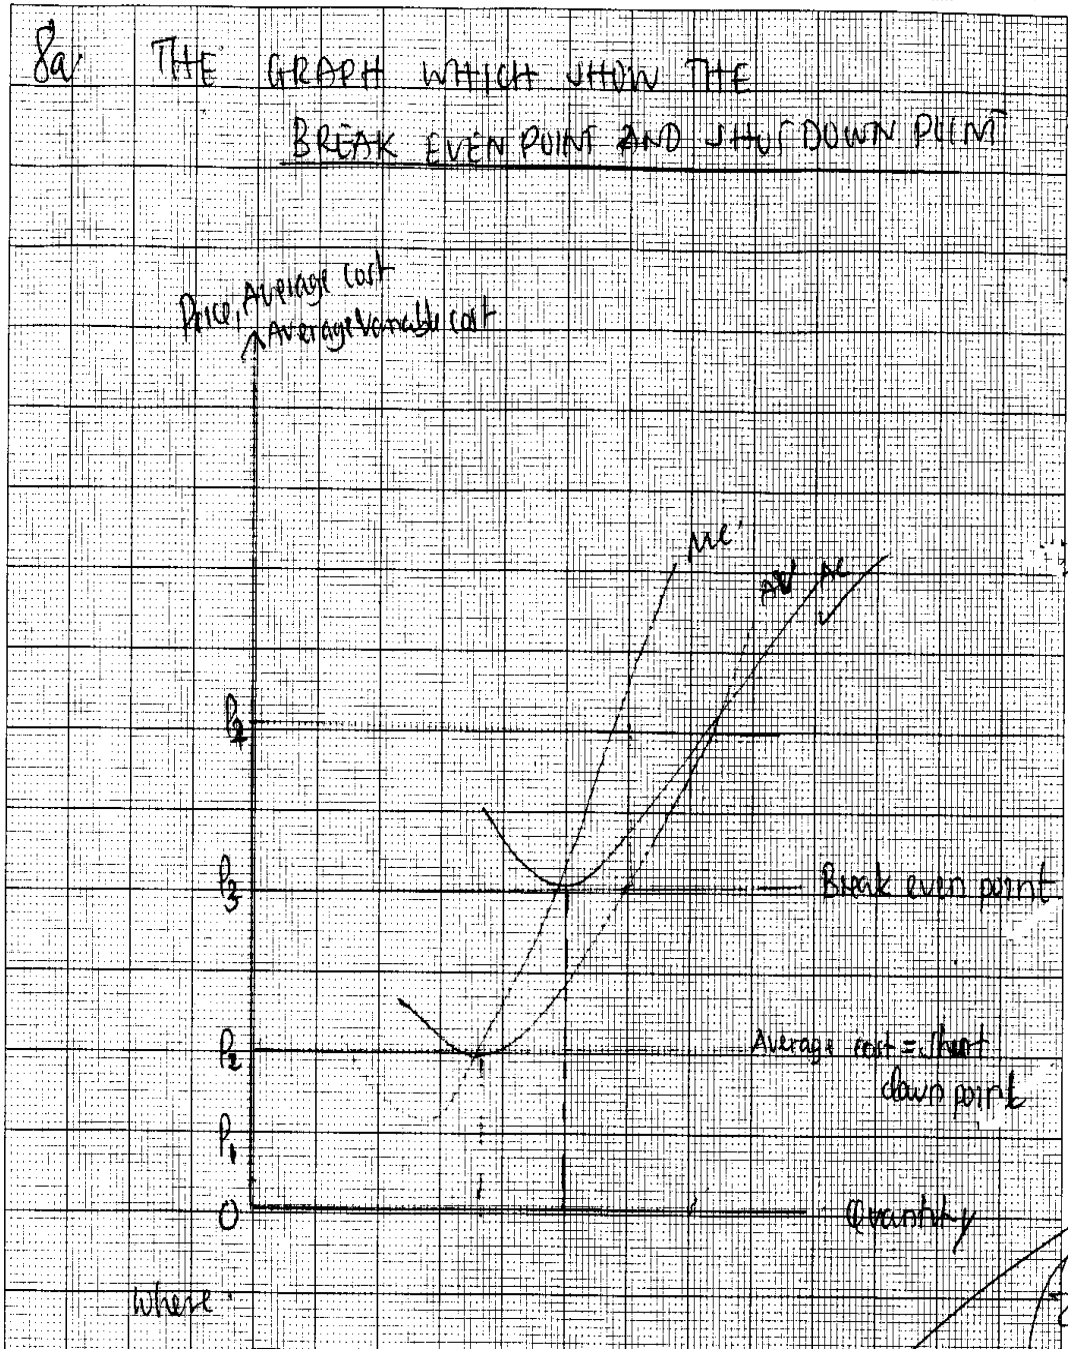 8a THE GRAPH WHICH SHOW THE
BREAK EVEN POINT AND SHUT DOWN POINT
Price, Average cost
Average Variable cost
MC
AV AC
P4
P3
Break even point
P2
Average cost = Shut
down point
P1
O
Quantity
Where